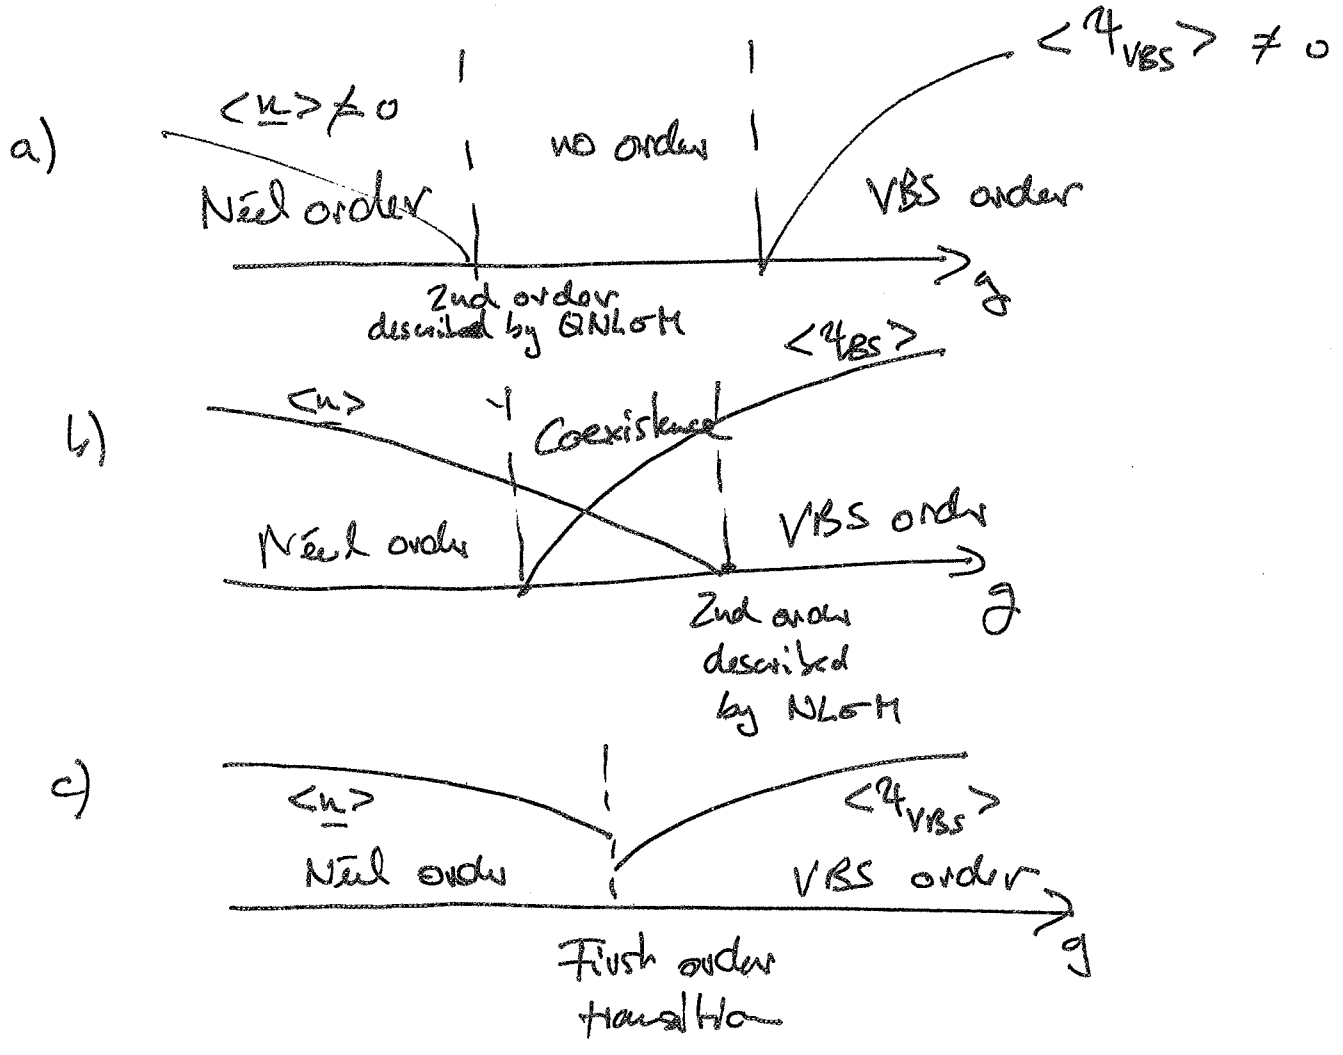 a)
<n> ≠ 0
Néel order
no order
<Ψ_VBS> ≠ 0
VBS order
g
2nd order
described by QNLσM
b)
<n>
Coexistence
<Ψ_VBS>
Néel order
VBS order
g
2nd order
described
by NLσM
c)
<n>
Néel order
<Ψ_VBS>
VBS order
g
First order
transition